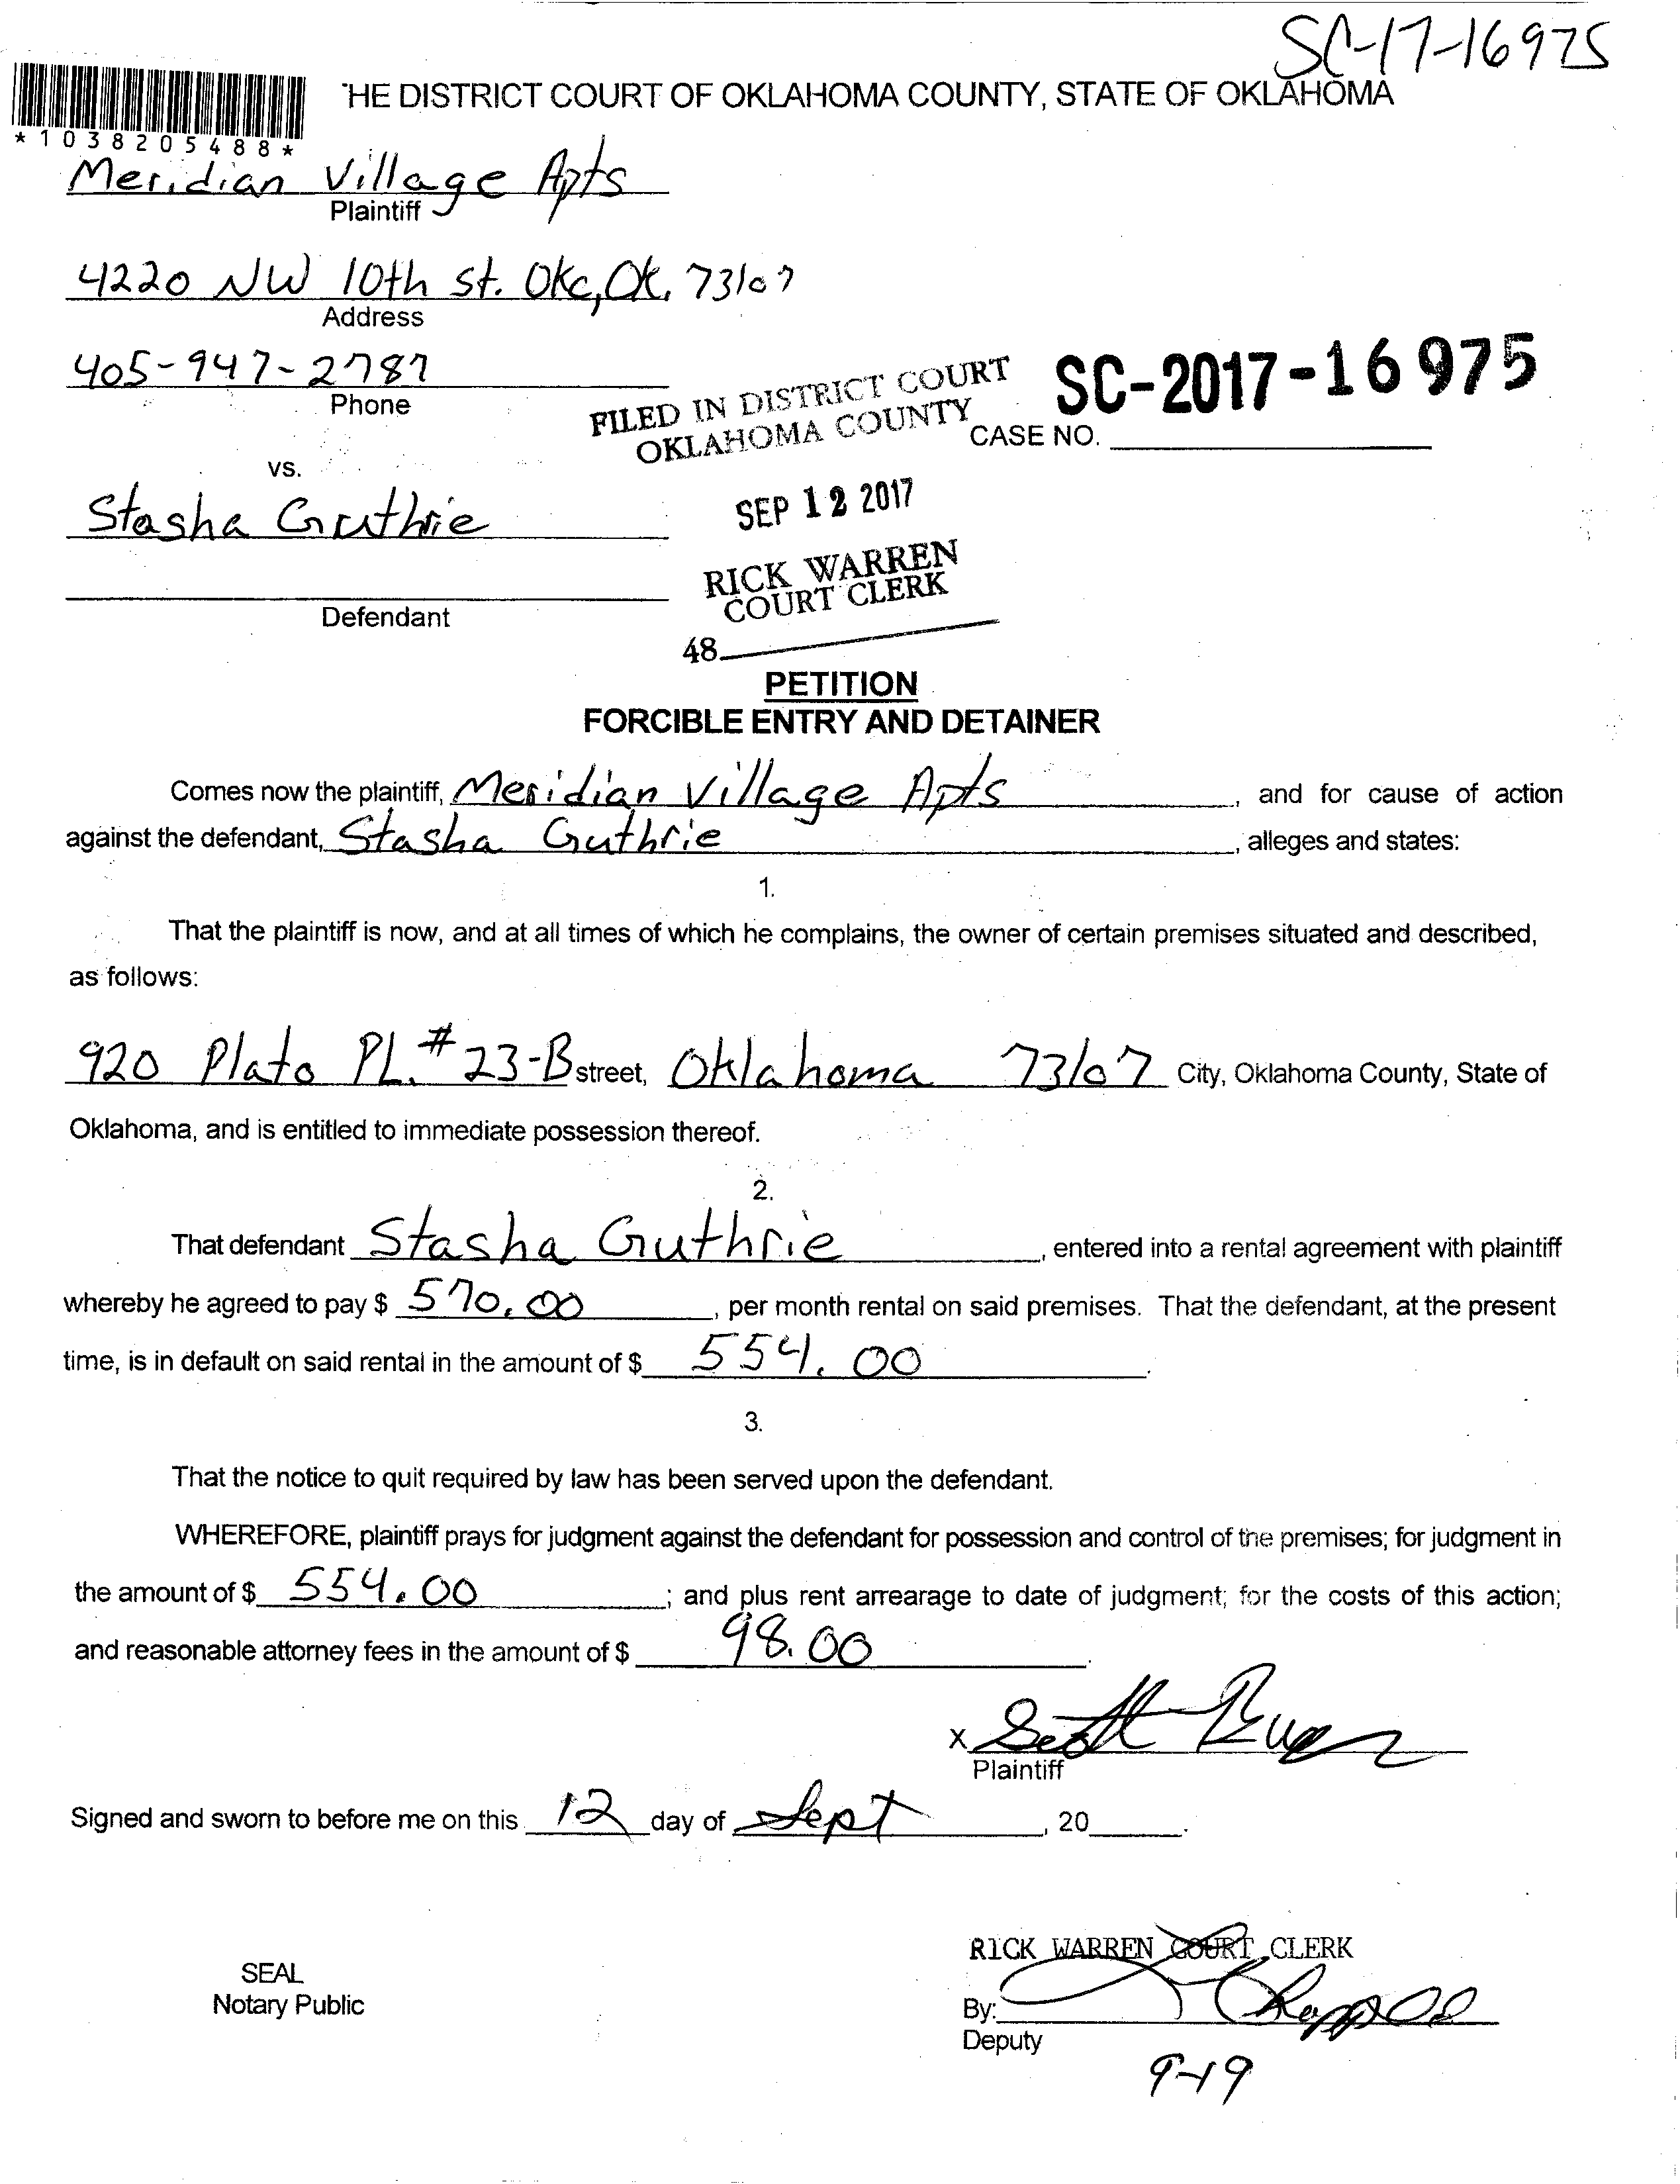 SC-17-16975
HE DISTRICT COURT OF OKLAHOMA COUNTY, STATE OF OKLAHOMA
*1038205488*
Meridian Village Apts
Plaintiff
4220 NW 10th st. Okc, Ok. 73107
Address
405-947-2787
Phone
FILED IN DISTRICT COURT
OKLAHOMA COUNTY
SC-2017-16975
CASE NO.
vs.
Stasha Guthrie
SEP 12 2017
RICK WARREN
COURT CLERK
Defendant
48
PETITION
FORCIBLE ENTRY AND DETAINER
Comes now the plaintiff, Meridian Village Apts, and for cause of action
against the defendant, Stasha Guthrie, alleges and states:
1.
That the plaintiff is now, and at all times of which he complains, the owner of certain premises situated and described,
as follows:
920 Plato PL. #23-B street, Oklahoma 73107 City, Oklahoma County, State of
Oklahoma, and is entitled to immediate possession thereof.
2.
That defendant Stasha Guthrie, entered into a rental agreement with plaintiff
whereby he agreed to pay $ 570.00, per month rental on said premises. That the defendant, at the present
time, is in default on said rental in the amount of $ 554.00.
3.
That the notice to quit required by law has been served upon the defendant.
WHEREFORE, plaintiff prays for judgment against the defendant for possession and control of the premises; for judgment in
the amount of $ 554.00; and plus rent arrearage to date of judgment; for the costs of this action;
and reasonable attorney fees in the amount of $ 98.00.
X Scott
Plaintiff
Signed and sworn to before me on this 12 day of Sept, 20.
RICK WARREN COURT CLERK
SEAL
Notary Public
By:
Deputy
9-19